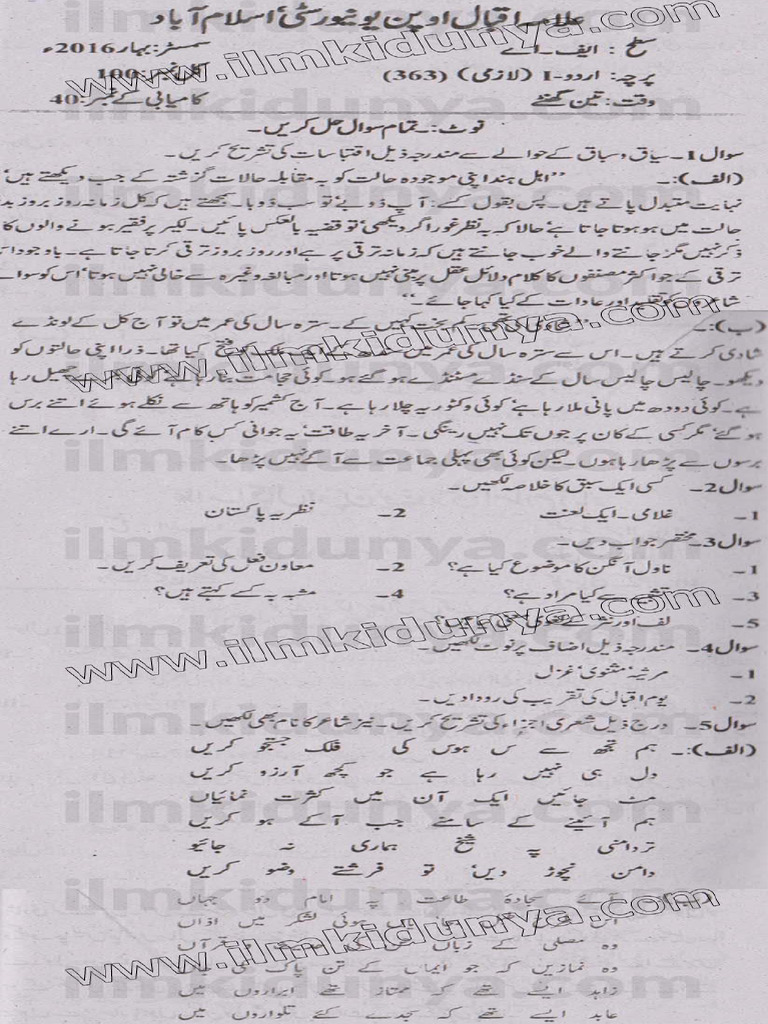 علامہ اقبال اوپن یونیورسٹی اسلام آباد
سطح : ایف۔اے سمسٹر: بہار 2016ء
پرچہ: اردو-I (لازمی) (363) کل نمبر: 100
وقت: تین گھنٹے کامیابی کے نمبر: 40
نوٹ:۔ تمام سوال حل کریں۔
سوال 1۔ سیاق و سباق کے حوالے سے مندرجہ ذیل اقتباسات کی تشریح کریں۔
(الف):۔ ''اہل ہند اپنی موجودہ حالت کو بہ مقابلہ حالات گزشتہ کے جب دیکھتے ہیں'
نہایت متبدل پاتے ہیں۔ پس بقول کسے: آپ ڈوبے تو سب ڈوبا۔ سمجھتے ہیں کہ کل زمانہ روز بروز بد
حالت میں ہو ہوتا جاتا ہے' حالا کہ بہ نظر غور اگر دیکھیں' تو قضیہ بالعکس پائیں۔ لکیر پر فقیر ہونے والوں کا
ذکر نہیں مگر جاننے والے خوب جانتے ہیں کہ زمانہ ترقی پر ہے اور روز بروز ترقی کرتا جاتا ہے۔ باوجود اس
ترقی کے جو اکثر مصنفوں کا کلام دلائل عقل پر مبنی نہیں ہوتا اور مبالغہ وغیرہ سے خالی نہیں ہوتا' اس کو سوائے
شاعروں کی تقلید اور عادات کے کیا کہا جائے۔''
(ب):۔ کم بخت کہیں کے۔ سترہ سال کی عمر میں تو آج کل کے لونڈے
شادی کرتے ہیں۔ اس سے سترہ سال کی عمر میں فتح کیا تھا۔ ذرا اپنی حالتوں کو
دیکھو۔ چالیس چالیس سال کے سنڈے مسٹنڈے ہو گئے ہو۔ کوئی حجامت بنا رہا ہے کھیل رہا
ہے۔ کوئی دودھ میں پانی ملا رہا ہے' کوئی وکٹوریہ چلا رہا ہے۔ آج کشمیر کو ہاتھ سے نکلے ہوئے اتنے برس
ہو گئے' مگر کسی کے کان پر جوں تک نہیں رینگی۔ آخر یہ طاقت' یہ جوانی کس کام آئے گی۔ ارے اتنے
برسوں سے پڑھا رہا ہوں۔ لیکن کوئی بھی پہلی جماعت سے آگے نہیں پڑھا۔
سوال 2۔ کسی ایک سبق کا خلاصہ لکھیں۔
1۔ غلامی۔ ایک لعنت 2۔ نظریہ پاکستان
سوال 3۔ مختصر جواب دیں۔
1۔ ناول آنگن کا موضوع کیا ہے؟ 2۔ معاون فعل کی تعریف کریں۔
3۔ سے کیا مراد ہے؟ 4۔ مشبہ بہ کسے کہتے ہیں؟
5۔ لف اور نشر کے
سوال 4۔ مندرجہ ذیل اصناف پر نوٹ لکھیں۔
1۔ مرثیہ' مثنوی' غزل
2۔ یوم اقبال کی تقریب کی روداد یں۔
سوال 5۔ درج ذیل شعری اجزاء کی تشریح کریں۔ نیز شاعر کا نام بھی لکھیں۔
(الف):۔ ہم تجھ سے کس ہوس کی فلک جستجو کریں
دل ہی نہیں رہا ہے جو کچھ آرزو کریں
مٹ جائیں ایک آن میں کثرت نمائیاں
ہم آئینے کے سامنے جب آکے ہو کریں
تردامنی پہ شیخ ہماری نہ جائیو
دامن نچوڑ دیں' تو فرشتے وضو کریں
آئے سجادۂ طاعت پہ امام دو جہاں
ہوئی لشکر میں اذاں
وہ مصلی کے زباں قرآں
وہ نمازیں کہ جو ایماں کے تن پاک کی
زاہد ایسے تھے کہ ممتاز تھے ابراروں میں
عابد ایسے تھے کہ سجدے کئے تلواروں میں
www.ilmkidunya.com